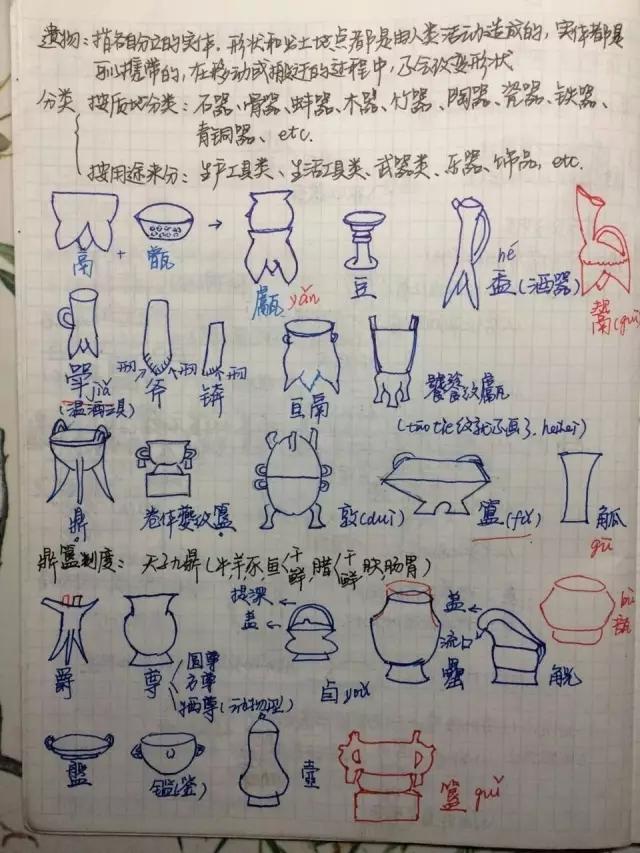 遗物：指各自分立的实体，形状和出土地点都是由人类活动造成的，实体都是
可以携带的，在移动或搬迁的过程中，不会改变形状
分类 按质地分类：石器、骨器、蚌器、木器、竹器、陶器、瓷器、铁器、
青铜器、etc.
按用途来分：生产工具类、生活工具类、武器类、乐器、饰品，etc.
鬲 + 甑 → 甗 yǎn 豆 hé 盉(酒器) 鬹(guī)
斝 jiǎ (温酒工具) 刃 斧 刃 锛 刃 鬲 饕餮纹甗
(tao tie纹就不画了，heihei)
鼎 卷体夔纹簋 敦(duì) 簠(fǔ) 觚 gū
鼎簋制度：天子九鼎(牛、羊、豕、鱼<干 鲜，腊<干 鲜，肤，肠胃)
爵 尊 圆尊 方尊 牺尊(动物型) 提梁 盖 卣 yǒu 罍 盖 流口 觥 bù 瓿
盤 鑑(鉴) 壶 簋 guǐ